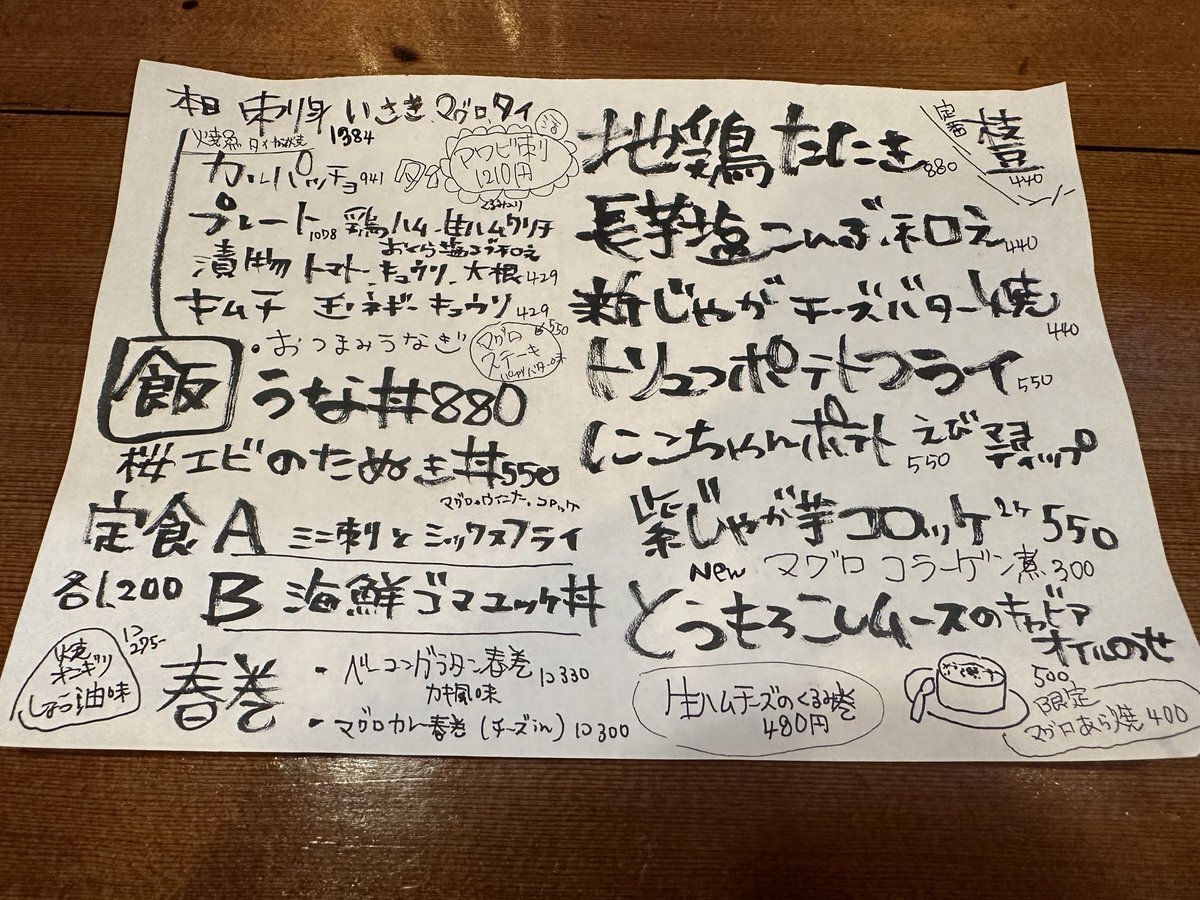 本日 刺身 いさき、マグロ、タイ
1384
カルパッチョ 941 タイ
活
アワビ刺
1210円
くるみ入り
プレート 1078 鶏ハム 生ハム クリチ
おくら塩こブ和え
漬物 トマト、キュウリ、大根 429
キムチ チ、ネギ、キュウリ 429
・おつまみうなぎ
550
マグロ
ステーキ
飯
うな丼 880
桜エビのたぬき丼 550
マグロ、ウインナー、コロッケ
定食 A ミニ刺とミックスフライ
各1,200 B 海鮮ゴマユッケ丼
焼
オニギリ
しょう油味
1コ
275-
春巻
・ベーコングラタン春巻 1コ330
カキ風味
・マグロカレー春巻 (チーズin) 1コ300
定番
枝豆
440
地鶏たたき 880
長芋塩こんぶ和え 440
新じゃがチーズバター焼 440
トリュフポテトフライ 550
にこちゃんポテト えび ディップ
550
紫じゃが芋コロッケ 2ケ 550
New マグロコラーゲン煮 300
とうもろこしムースのキャビア
オイルのせ
500
生ハムチーズのくるみ巻
480円
限定
マグロあら焼 400